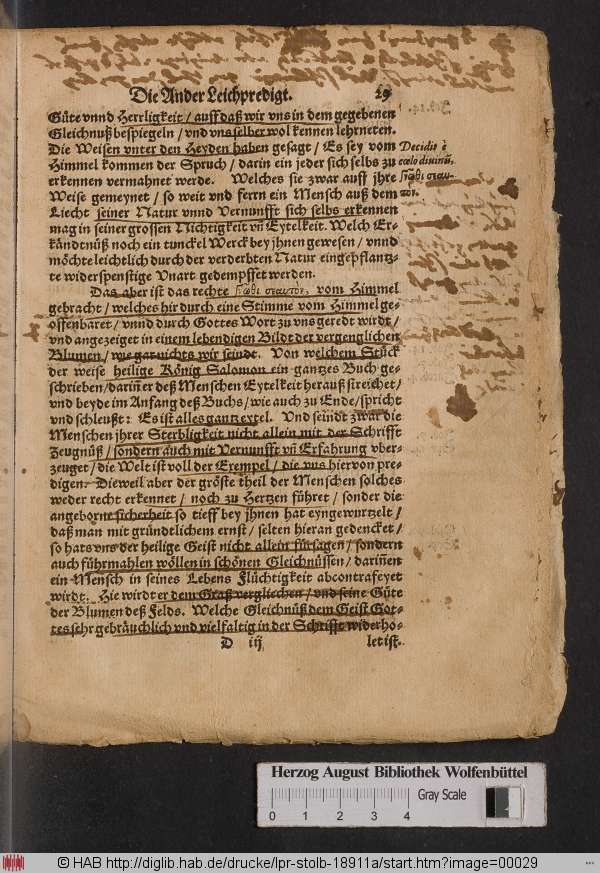 Die Ander Leichpredigt. 29
Güte vnnd Herrligkeit / auff daß wir vns in dem gegebenen
Gleichnuß bespiegeln / vnd vns selber wol kennen lehrneten.
Die Weisen vnter den Heyden haben gesagt / Es sey vom
Himmel kommen der Spruch / darin ein jeder sich selbs zu
erkennen vermahnet werde. Welches sie zwar auff jhre
Weise gemeynet / so weit vnd ferrn ein Mensch auß dem
Liecht seiner Natur vnnd Vernunfft sich selbs erkennen
mag in seiner grossen Nichtigkeit vñ Eytelkeit. Welch Er-
kändtnüß noch ein tunckel Werck bey jhnen gewesen / vnnd
möchte leichtlich durch der verderbten Natur eingepflantz-
te widerspenstige Vnart gedempffet werden.
Decidit è
cœlo divinũ,
γνῶθι σεαυ-
τόν.
Das aber ist das rechte γνῶθι σεαυτόν, vom Himmel
gebracht / welches hir durch eine Stimme vom Himmel ge-
offenbaret / vnnd durch Gottes Wort zu vns geredt wirdt /
vnd angezeiget in einem lebendigen Bildt der vergenglichen
Blumen / wie gar nichts wir seindt. Von welchem Stück
der weise heilige König Salomon ein gantzes Buch ge-
schrieben / dariñ er deß Menschen Eytelkeit herauß streichet /
vnd beyde im Anfang deß Buchs / wie auch zu Ende / spricht
vnd schleußt: Es ist alles gantz eytel. Vnd seindt zwar die
Menschen jhrer Sterbligkeit nicht allein mit der Schrifft
Zeugnüß / sondern auch mit Vernunfft vñ Erfahrung vber-
zeuget / die Welt ist voll der Exempel / die vns hiervon pre-
digen. Dieweil aber der gröste theil der Menschen solches
weder recht erkennet / noch zu Hertzen führet / sonder die
angeborne sicherheit so tieff bey jhnen hat eyngewurtzelt /
daß man mit gründtlichem ernst / selten hieran gedencket /
so hats vns der heilige Geist nicht allein fürsagen / sondern
auch führmahlen wöllen in schönen Gleichnüssen / dariñen
ein Mensch in seines Lebens Flüchtigkeit abcontrafeyet
wirdt. Hie wirdt er dem Graß verglichen / vnd seine Güte
der Blumen deß Felds. Welche Gleichnüß dem Geist Got-
tes sehr gebräuchlich vnd vielfaltig in der Schrifft widerho-
D iij let ist.
Herzog August Bibliothek Wolfenbüttel
0 1 2 3 4 Gray Scale
© HAB http://diglib.hab.de/drucke/lpr-stolb-18911a/start.htm?image=00029